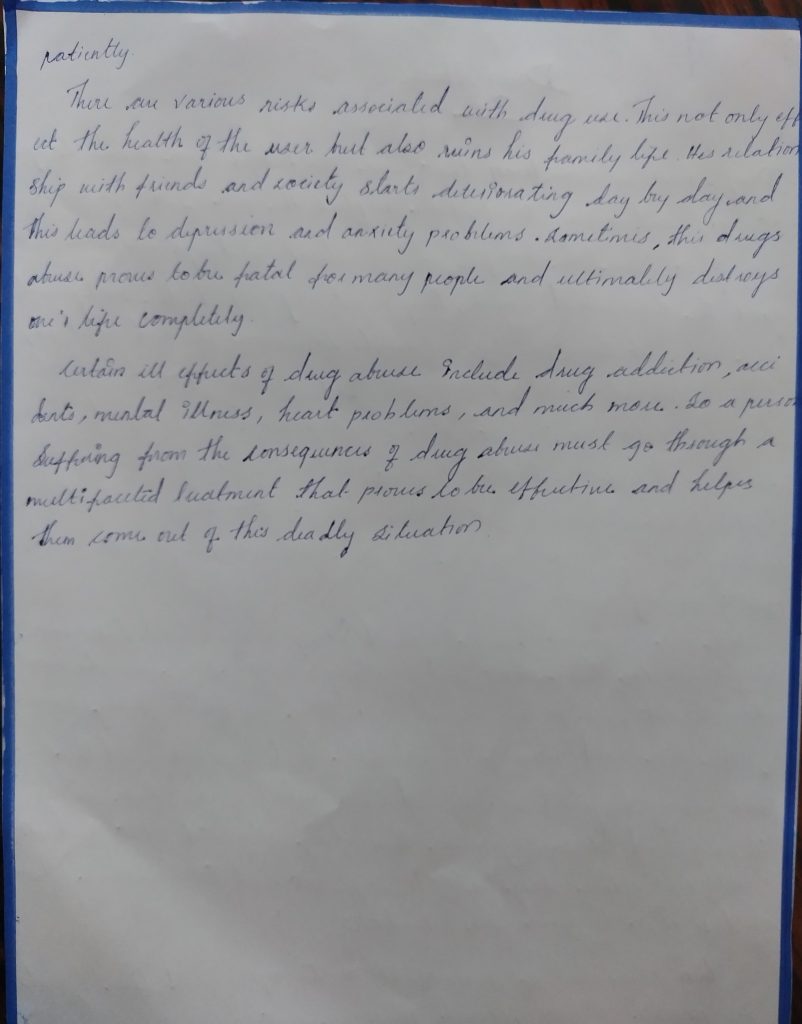 patiently.
There are various risks associated with drug use. This not only eff
ect the health of the user but also ruins his family life. His relation
ship with friends and society starts deteriorating day by day and
this leads to depression and anxiety problems. Sometimes, this drugs
abuse proves to be fatal for many people and ultimately destroys
one's life completely.
Certain ill effects of drug abuse include drug addiction, acci
dents, mental illness, heart problems, and much more. So a person
suffering from the consequences of drug abuse must go through a
multifaceted treatment that proves to be effective and helps
them come out of this deadly situation.